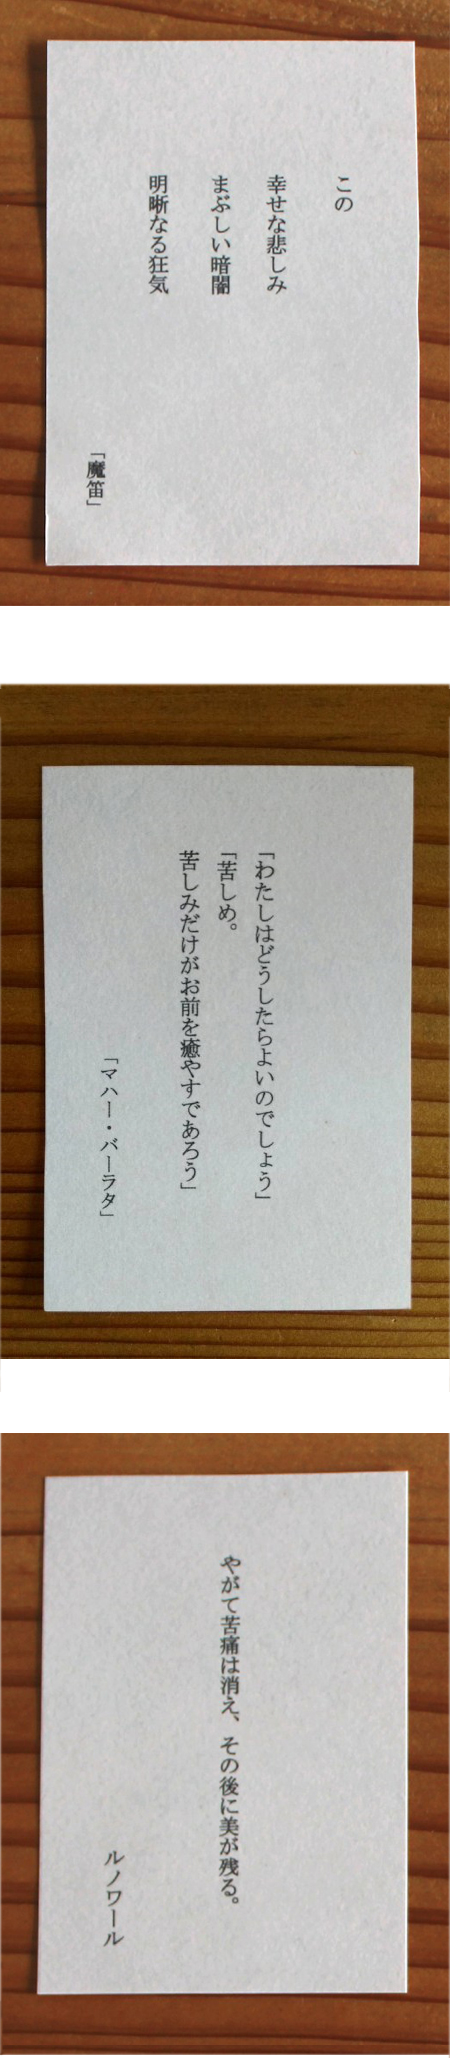 この
幸せな悲しみ
まぶしい暗闇
明晰なる狂気
「魔笛」
「わたしはどうしたらよいのでしょう」
「苦しめ。
苦しみだけがお前を癒やすであろう」
「マハー・バーラタ」
やがて苦痛は消え、その後に美が残る。
ルノワール